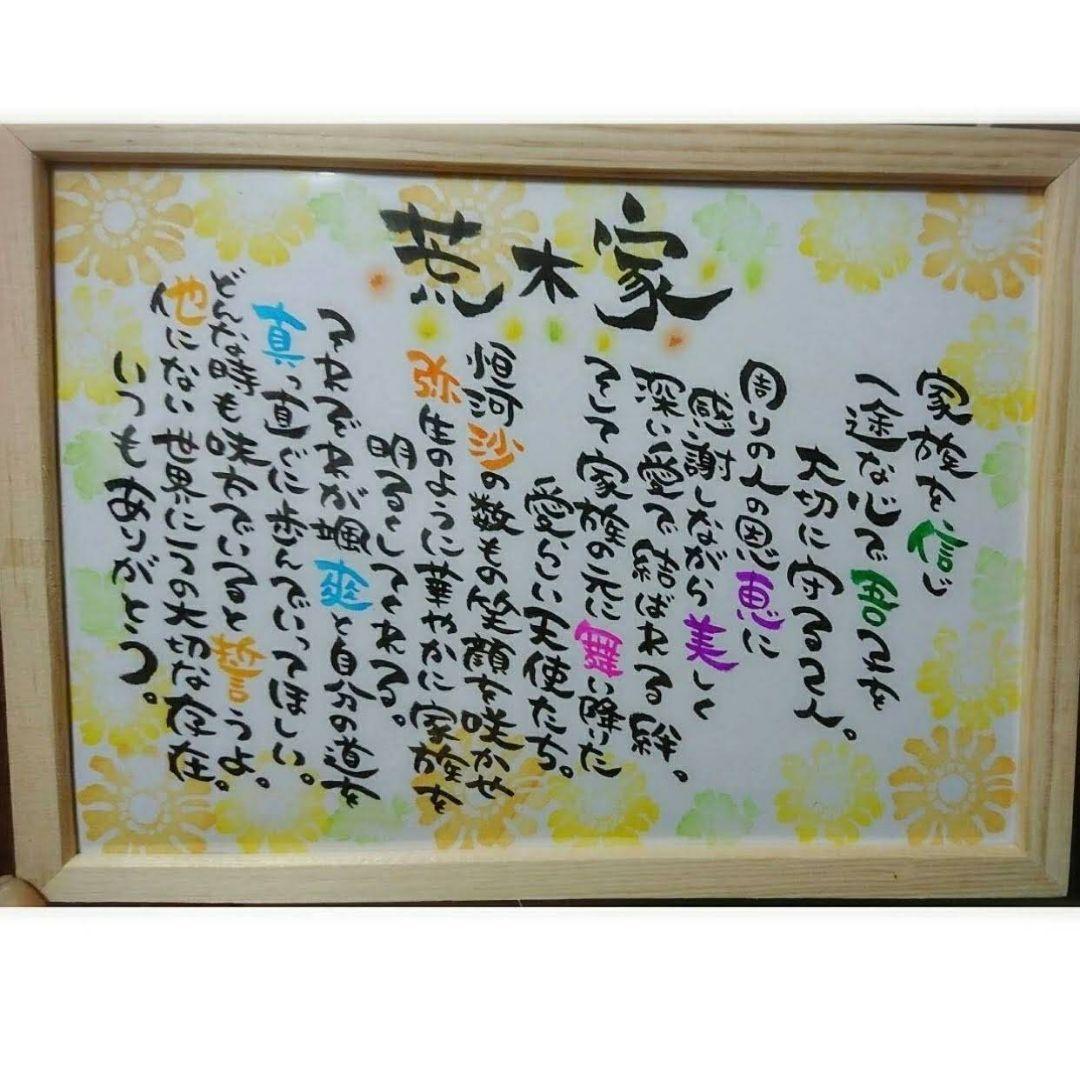 荒木家
家族を信じ
一途な心で君てくを
大切に守ってる人。
周りの人の恩恵に
感謝しながら美しく
深い愛で結ばれてる絆。
そして家族の火に舞い降りた
愛らしい天使たち。
恒河沙の数もの笑顔を咲かせ
弥生のように華やかに家族を
明るくしてくれてる。
それぞれが颯爽と自分の道を
真っ直ぐに歩んでいってほしい。
どんな時も味方でいてると誓うよ。
他にない世界に一つの大切な存在。
いつもありがとう。